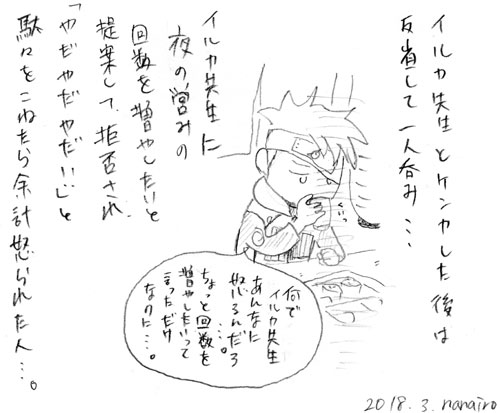 イルカ先生とケンカした後は
反省して一人呑み…
ぐいっ
イルカ先生に
夜の営みの
回数を増やしたいと
提案して、拒否され、
「やだやだやだ!!」と
駄々をこねたら余計怒られた人…。
何で
イルカ先生
あんなに
怒るんだろ
…。
ちょっと回数を
増やしたいって
言っただけ
なのに…。
2018.3.nanairo